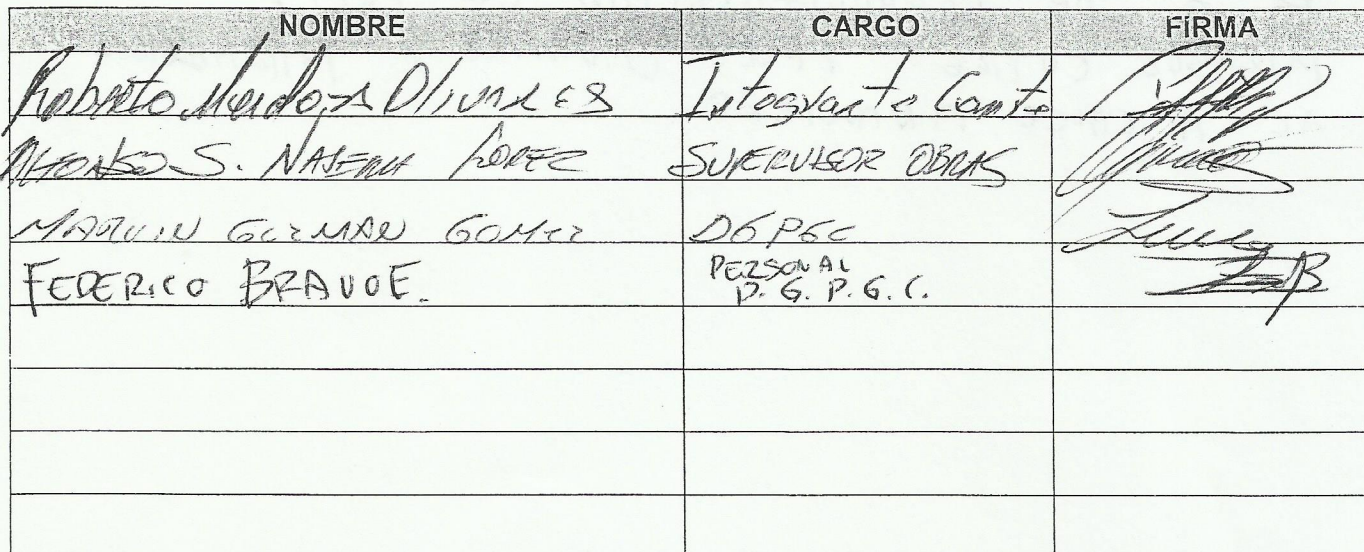 NOMBRE CARGO FIRMA
Roberto Mendoza Olivares Integrante Comite
ALFONSO S. NAJERA LOPEZ SUPERVISOR OBRAS
MARVIN GUZMAN GOMEZ DGPGC
FEDERICO BRAVO E. PERSONAL
D. G. P. G. C.